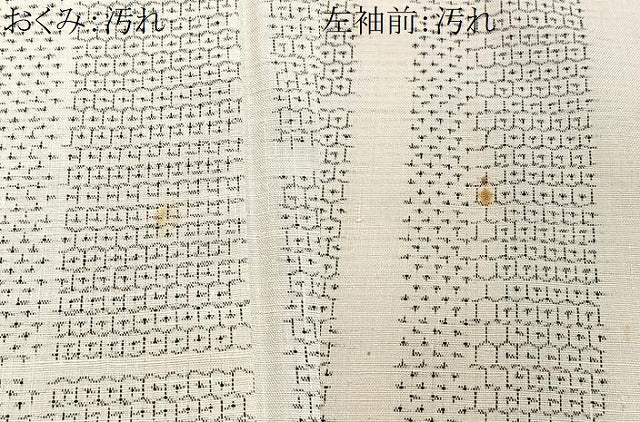 おくみ：汚れ
左袖前：汚れ